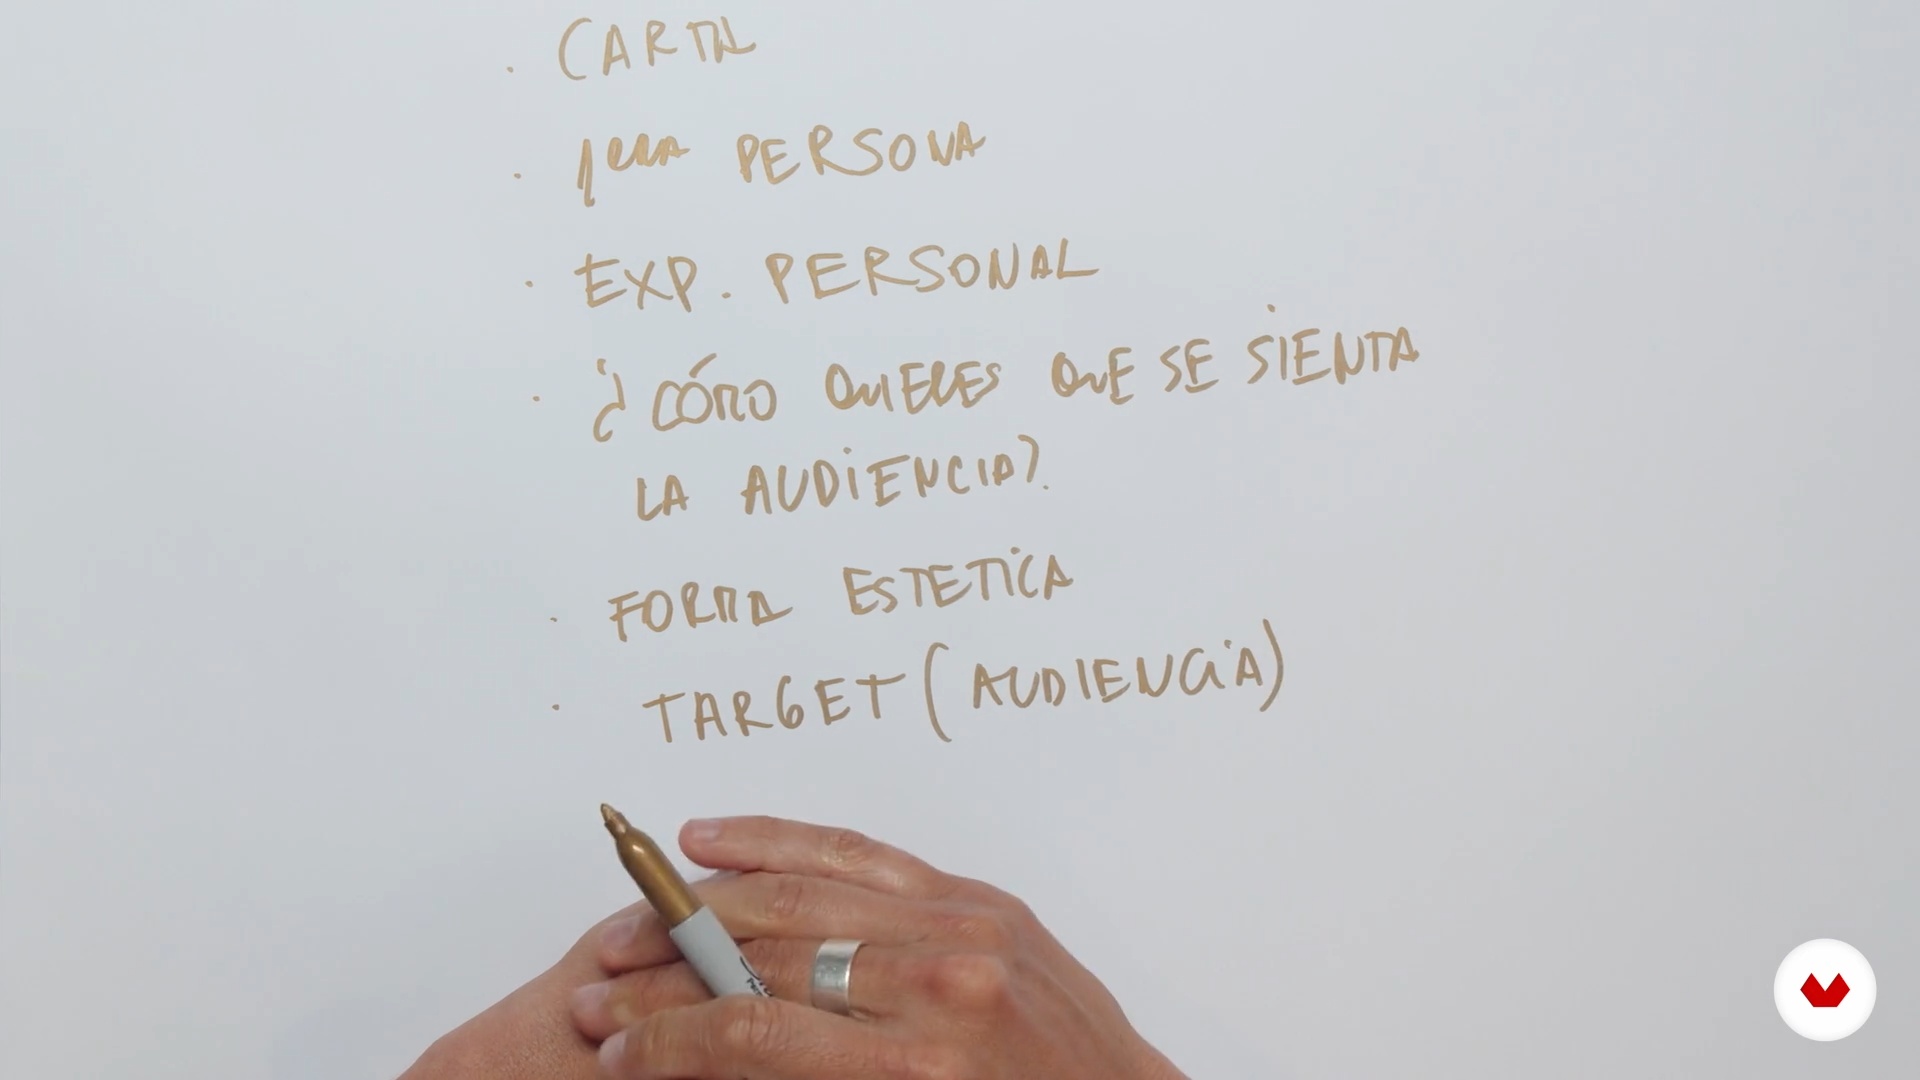 · CARTA
· 1era PERSONA
· EXP. PERSONAL
· ¿CÓMO QUERES QUE SE SIENTA
LA AUDIENCIA?
· FORMA ESTETICA
· TARGET (AUDIENCIA)